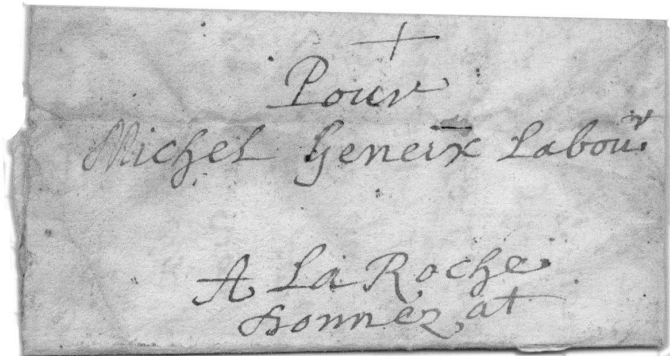 Pour
Michel Geneix Labour
A La Roche
Donnezat